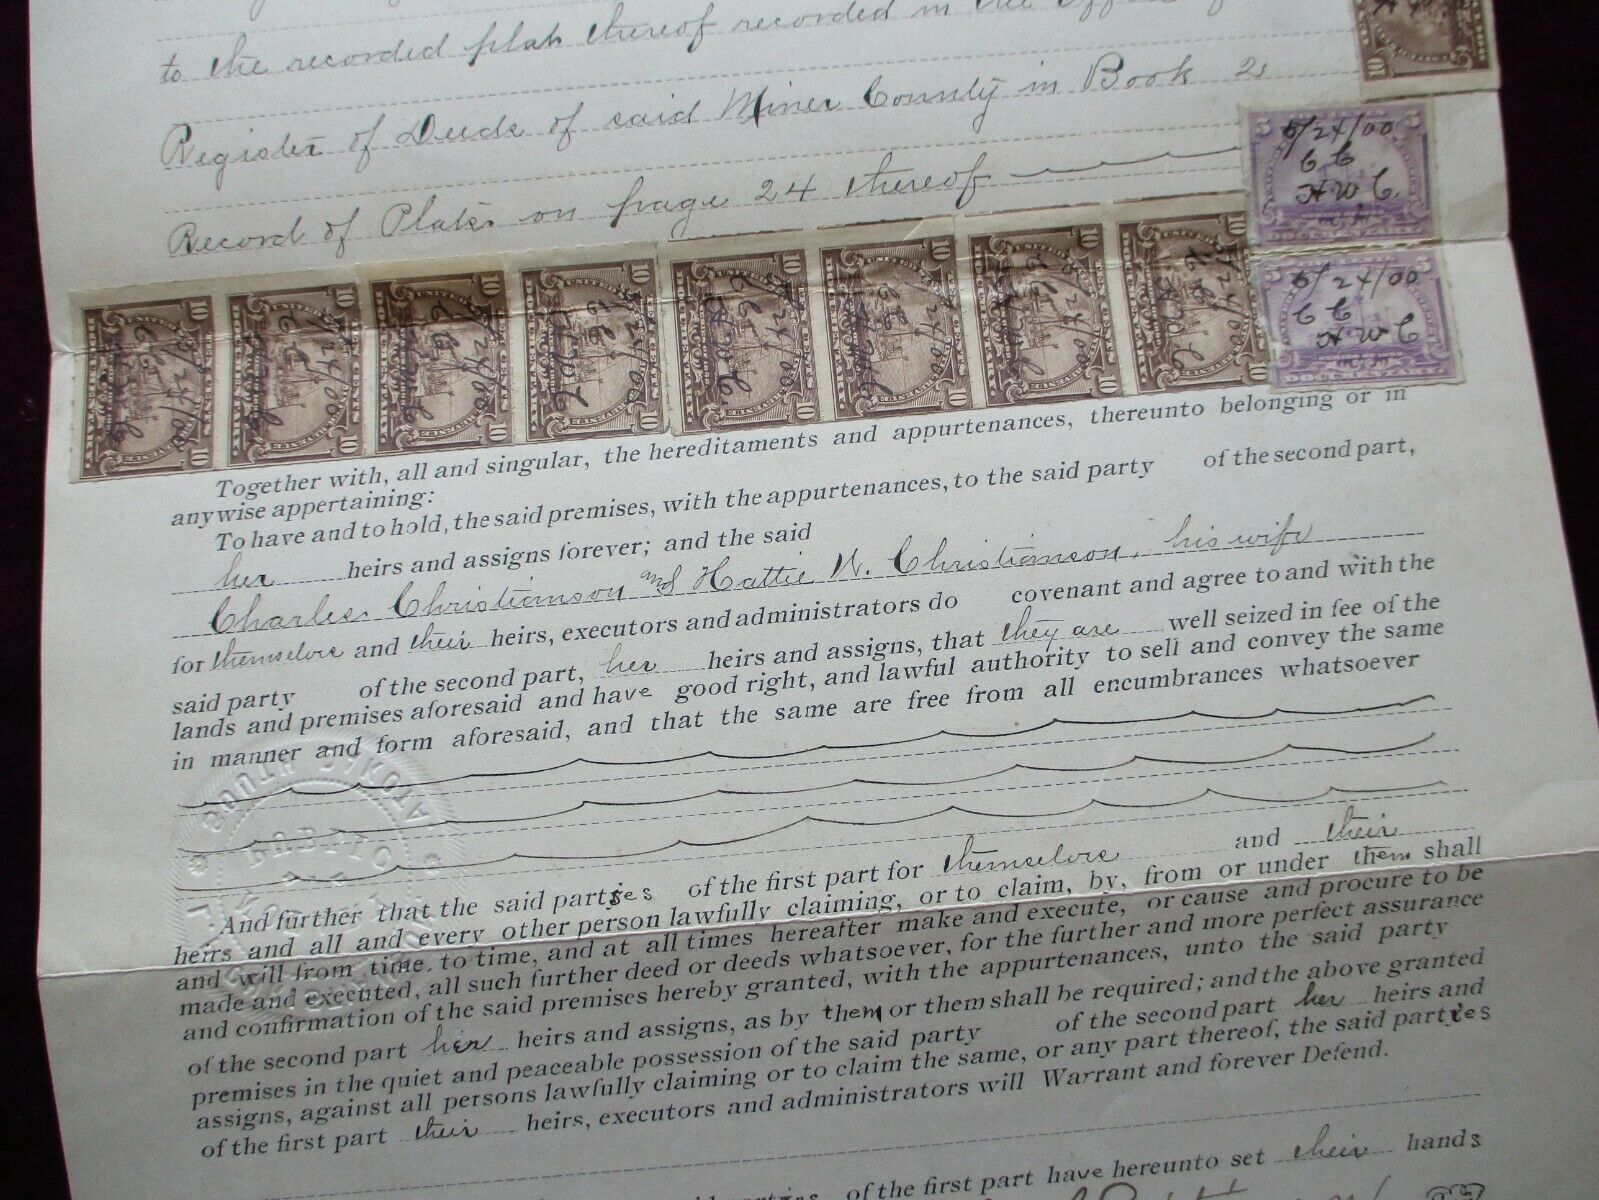 to the recorded plat thereof recorded in the office
Register of Deeds of said Miner County in Book 2
Record of Plats on page 24 thereof
10
5 5
5/24/00
C C
H W C.
DOCUMENTARY
5/24/00
C C
H W C
DOCUMENTARY
10 10 10 10 10 10 10 10
Together with, all and singular, the hereditaments and appurtenances, thereunto belonging or in
anywise appertaining:
To have and to hold, the said premises, with the appurtenances, to the said party of the second part,
her heirs and assigns forever; and the said
Charles Christianson and Hattie W. Christianson, his wife
for themselvs and their heirs, executors and administrators do covenant and agree to and with the
said party of the second part, her heirs and assigns, that they are well seized in fee of the
lands and premises aforesaid and have good right, and lawful authority to sell and convey the same
in manner and form aforesaid, and that the same are free from all encumbrances whatsoever
And further that the said parties of the first part for themselvs and their
heirs and all and every other person lawfully claiming, or to claim, by, from or under them shall
and will from time to time, and at all times hereafter make and execute, or cause and procure to be
made and executed, all such further deed or deeds whatsoever, for the further and more perfect assurance
and confirmation of the said premises hereby granted, with the appurtenances, unto the said party
of the second part her heirs and assigns, as by them or them shall be required; and the above granted
premises in the quiet and peaceable possession of the said party of the second part her heirs and
assigns, against all persons lawfully claiming or to claim the same, or any part thereof, the said parties
of the first part their heirs, executors and administrators will Warrant and forever Defend.
of the first part have hereunto set their hands